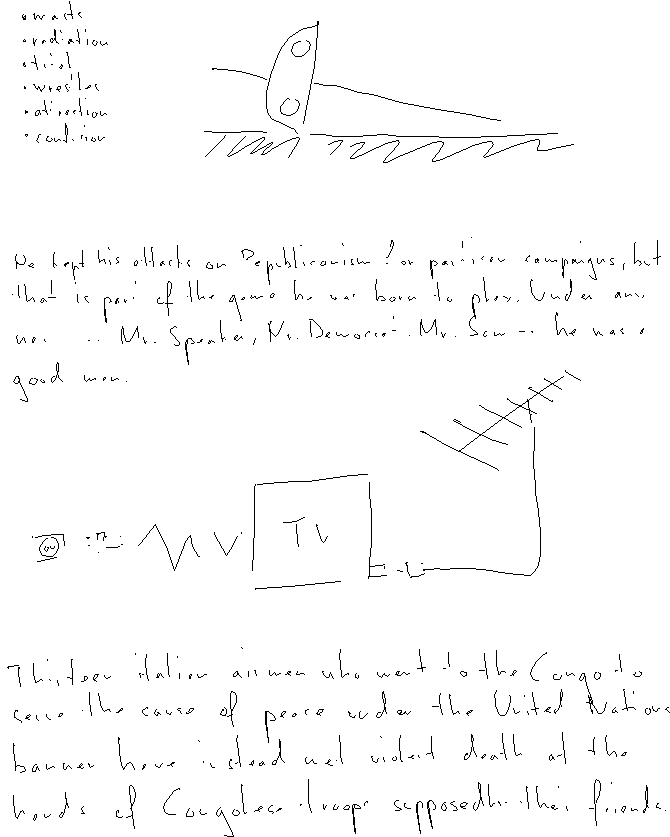 • radiation
• trial
• wrestles
He kept his attacks on Republicanism for partisan campaigns, but
that is part of the game he was born to play. Under any
Mr. Speaker, Mr. Democrat, Mr. Sam - he was a
good man.
TV
Thirteen Italian airmen who went to the Congo to
serve the cause of peace under the United Nations
banner have instead met violent death at the
hands of Congolese troops supposedly their friends.